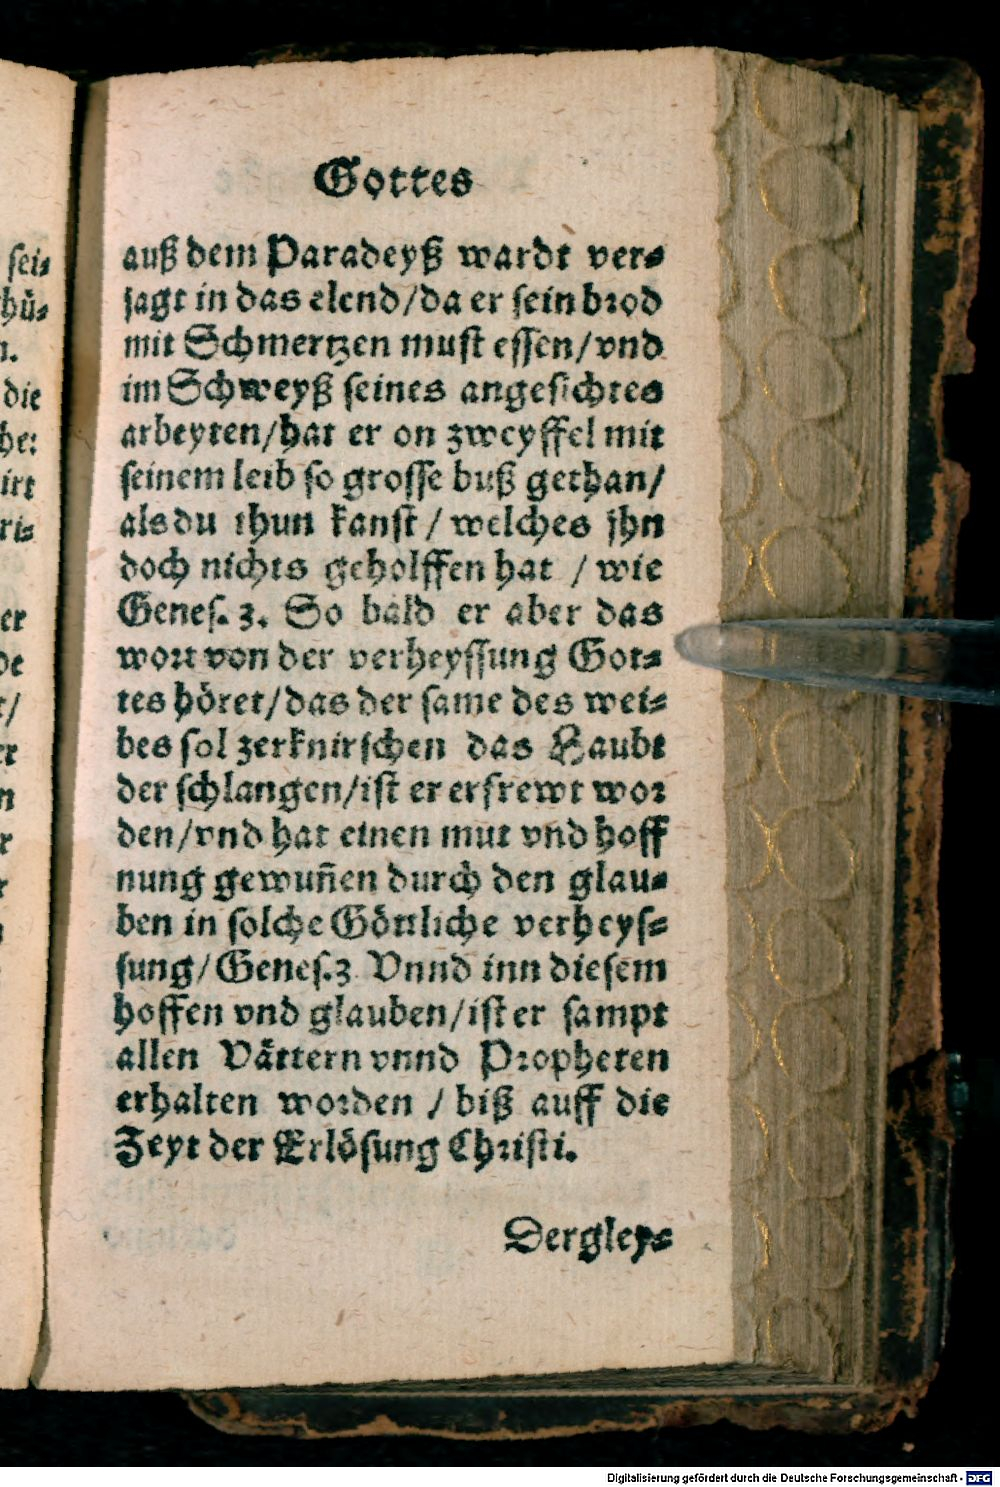 Gottes
auß dem Paradeyß wardt ver⸗
jagt in das elend/da er sein brod
mit Schmertzen must essen/vnd
im Schweyß seines angesichtes
arbeyten/hat er on zweyffel mit
seinem leib so grosse buß gethan/
als du thun kanst / welches jhn
doch nichts geholffen hat / wie
Genes. 3. So bald er aber das
wort von der verheyssung Got⸗
tes höret/das der same des wei⸗
bes sol zerknirschen das Haubt
der schlangen/ist er erfrewt wor
den/vnd hat einen mut vnd hoff
nung gewuñen durch den glau⸗
ben in solche Göttliche verheys⸗
sung/Genes.3 Vnnd inn diesem
hoffen vnd glauben/ist er sampt
allen Vättern vnnd Propheten
erhalten worden / biß auff die
Zeyt der Erlösung Christi.
Dergley⸗
sei⸗
hü⸗
n.
die
he:
irt
ri⸗
er
de
t/
er
n
r
r
n
Digitalisierung gefördert durch die Deutsche Forschungsgemeinschaft - DFG